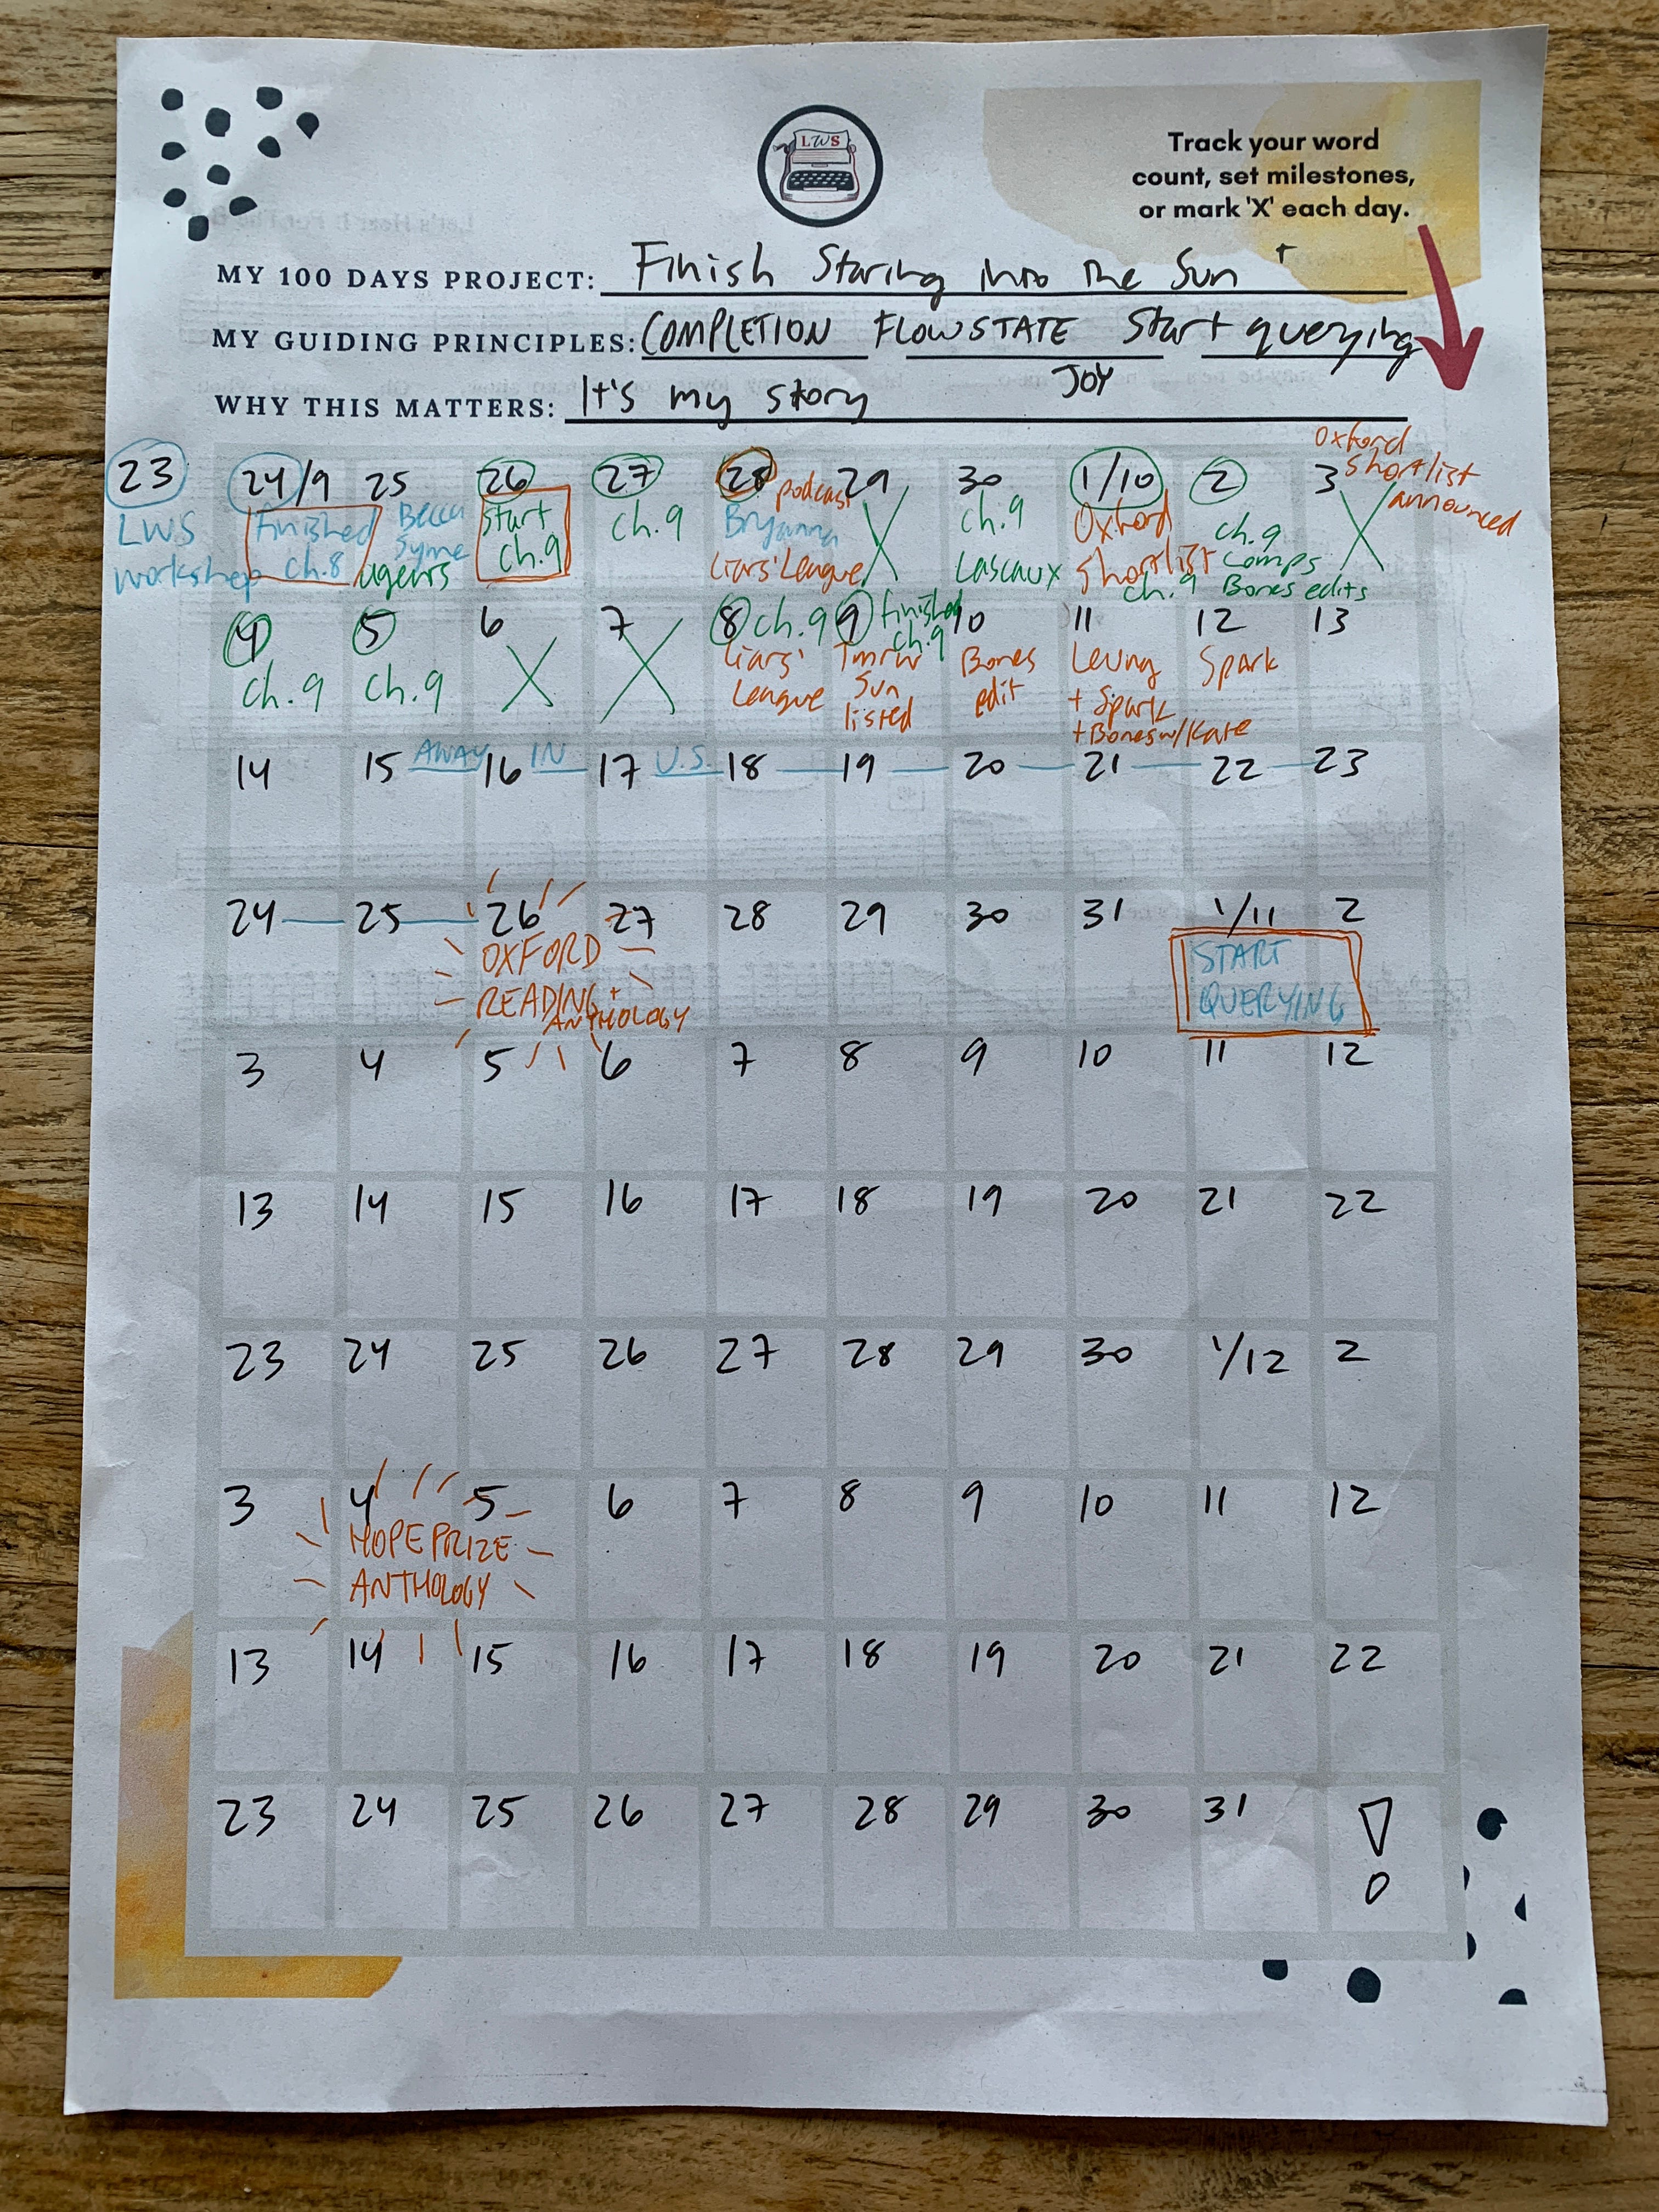 LWS
Track your word
count, set milestones,
or mark 'X' each day.
MY 100 DAYS PROJECT: Finish Staring into the Sun +
MY GUIDING PRINCIPLES: COMPLETION FLOWSTATE Start querying
JOY
WHY THIS MATTERS: It's my story
23 24/9 25 26 27 28 29 30 1/10 2 3
LWS workshop
Finished ch.8
Becca Syme agents
Start ch.9
ch.9
podcast Bryanna Liars' League
X
ch.9 Lascaux
Oxford Shortlist ch.9
ch.9 Comps Bones edits
Oxford shortlist announced
X
4 5 6 7 8 9 10 11 12 13
ch.9
ch.9
X
X
ch.9 Liars' League
finished ch.9 Tmrw Sun listed
Bones edit
+ Spark + Bones w/Kate
Spark
14 15 16 17 18 19 20 21 22 23
AWAY IN U.S.
24 25 26 27 28 29 30 31 1/11 2
OXFORD
READING +
ANTHOLOGY
START
QUERYING
3 4 5 6 7 8 9 10 11 12
13 14 15 16 17 18 19 20 21 22
23 24 25 26 27 28 29 30 1/12 2
3 4 5 6 7 8 9 10 11 12
HOPE PRIZE
ANTHOLOGY
13 14 15 16 17 18 19 20 21 22
23 24 25 26 27 28 29 30 31 !